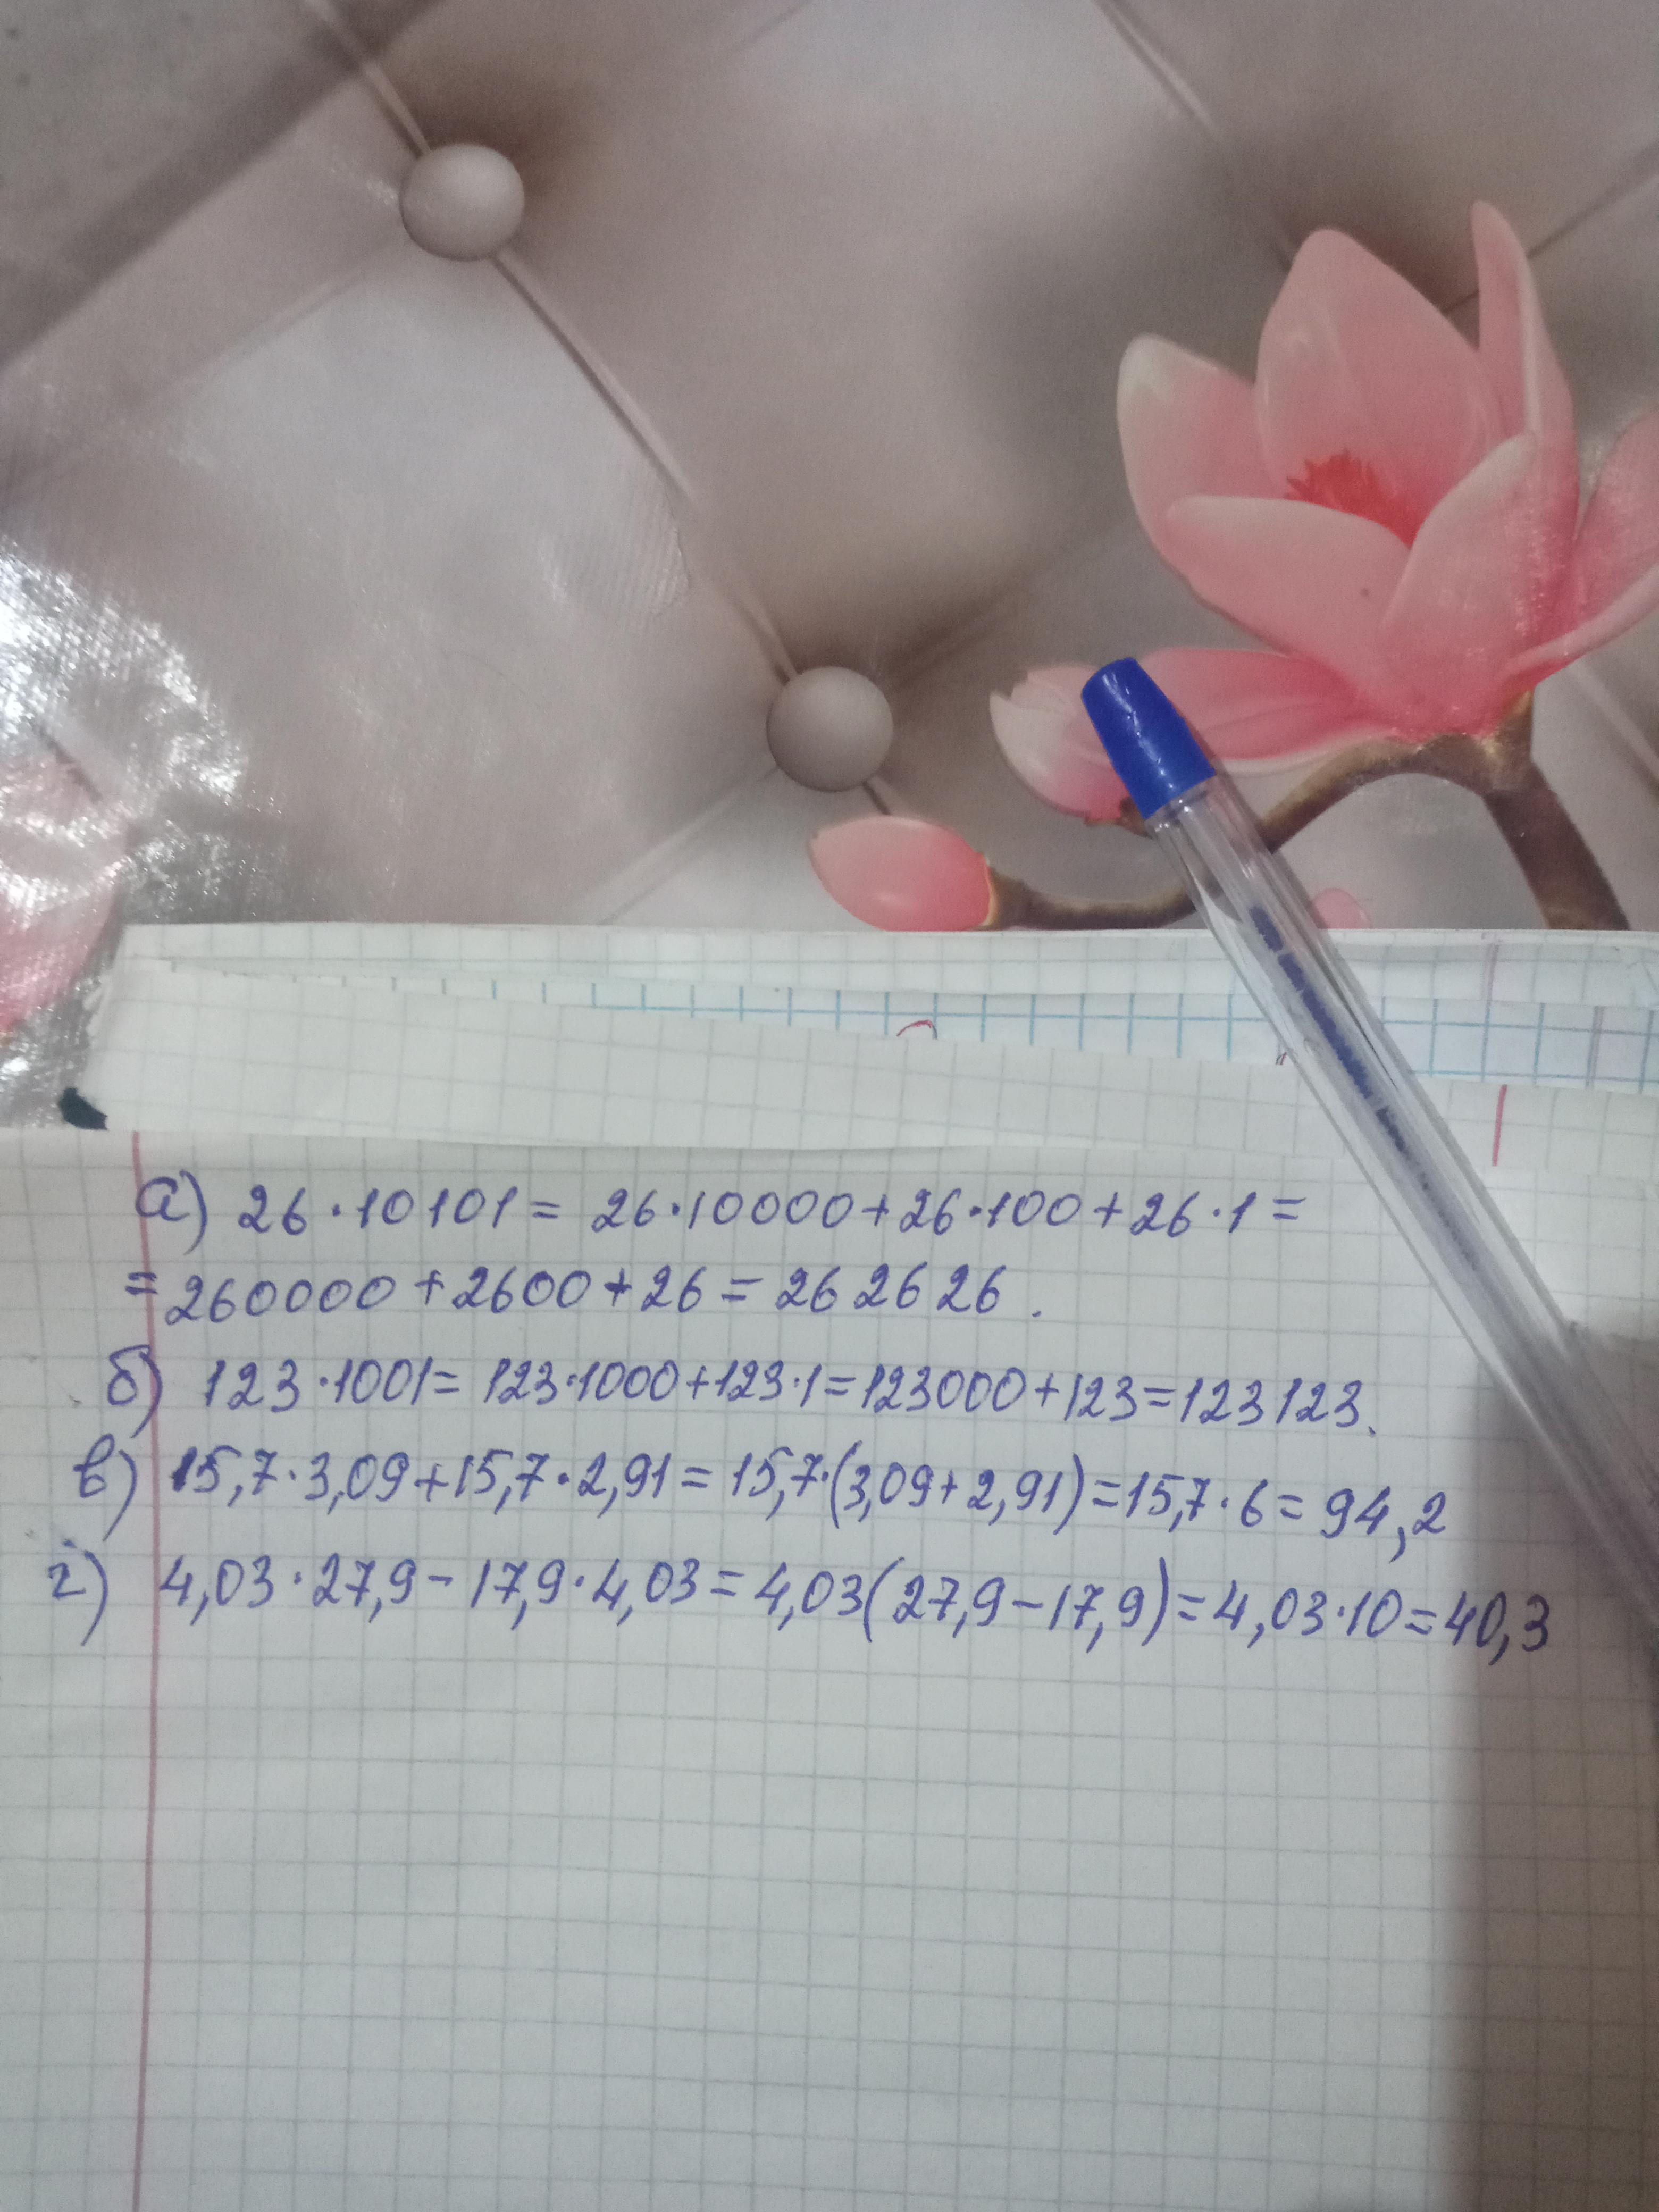 а) 26·10101= 26·10000+26·100+26·1=
=260000+2600+26=262626.
б) 123·1001= 123·1000+123·1=123000+123=123123.
в) 15,7·3,09+15,7·2,91=15,7·(3,09+2,91)=15,7·6=94,2
г) 4,03·27,9-17,9·4,03=4,03(27,9-17,9)=4,03·10=40,3